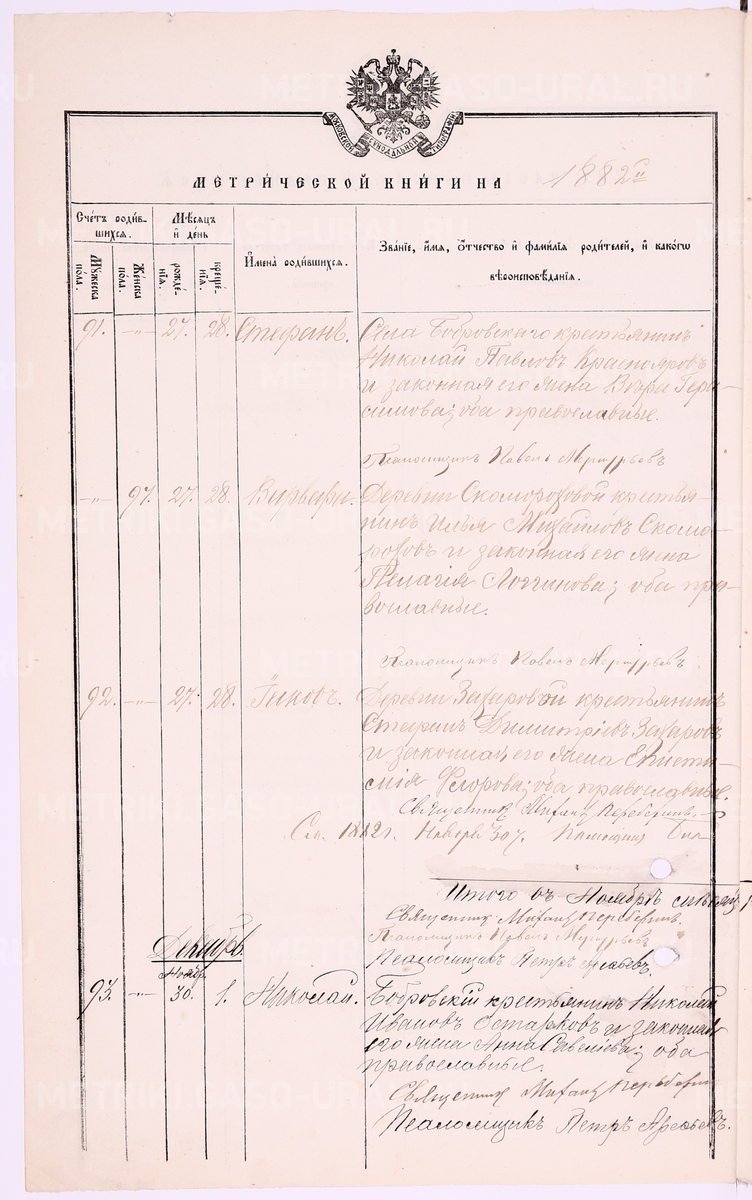 МЕТРИЧЕСКОЙ КНИГИ НА 1882 г.
Счетъ родившихся.
Мѣсяцъ и день
Имена родившихся.
Званіе, имя, отчество и фамилія родителей, и какого вѣроисповѣданія.
Мужеска пола.
Женска пола.
рожденія.
крещенія.
91. -„- 27. 28. Стефанъ. Села Бобровскаго крестьянинъ
Николай Павловъ Краснояровъ
и законная его жена Вѣра Гера-
симова; оба православные.
Псаломщикъ Павелъ Меркурьевъ
-„- 97. 27. 28. Варвара. Деревни Скомороховой крестья-
нинъ Илья Михайловъ Скомо-
роховъ и законная его жена
Пелагія Логгинова; оба пра-
вославные.
Псаломщикъ Павелъ Меркурьевъ
92. -„- 27. 28. Іаковъ. Деревни Захаровой крестьянинъ
Стефанъ Димитріевъ Захаровъ
и законная его жена Еписти-
мія Флорова; оба православные.
Священникъ Михаилъ
1882 г. Ноябрь
Итого въ Ноябрѣ
Священникъ Михаилъ
Псаломщикъ Павелъ Меркурьевъ
Псаломщикъ Петръ
Декабрь.
Ноябр.
93. -„- 30. 1. Николай. Бобровскій крестьянинъ Николай
Ивановъ Остарковъ и законная
его жена Анна Савеліева; оба
православные.
Священникъ Михаилъ
Псаломщикъ Петръ